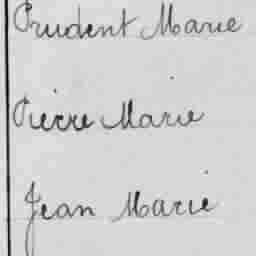 Prudent Marie
Pierre Marie
Jean Marie